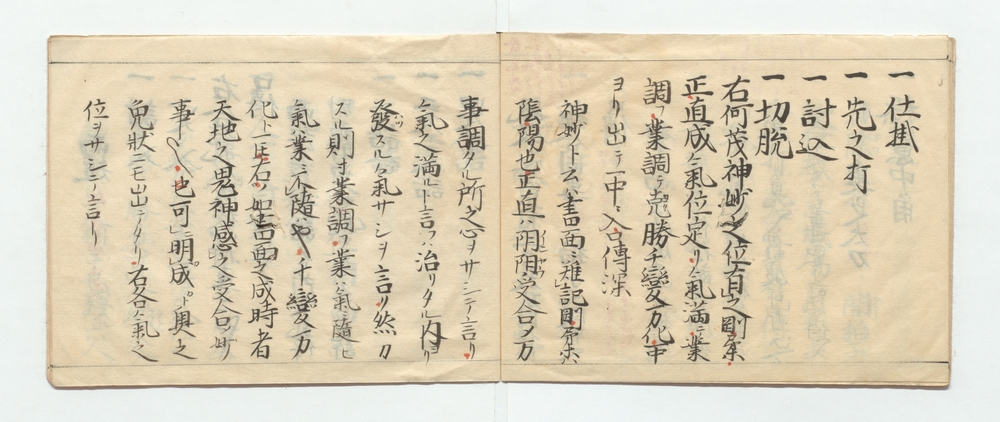 一仕掛
一先之打
一討込
一切脱
右何茂神妙之位有之剛柔
正直成ル氣位定リ氣満テ業
調ヒ業調テ克勝千變万化中
ヨリ出テ中ニ入口傳深
神妙ト云ハ書面ニ難記剛柔ハ
陰陽也正直ハ陰陽受合タ万
事調タル所之念ヲサシテ言リ
氣之満ルト言フハ治リタル内ヨリ
發スル氣サシヲ言リ然ﾘ
スル則ハ業調フ業ハ氣ニ隨ヒ
氣ハ業ニ不隨也千變万
化ト一圧石ノ如書面之成時者
天地之鬼神感之受合ノ妙
事々也可明成ト與之
免状ニモ出テタリ右各氣之
位ヲサシテ言リ